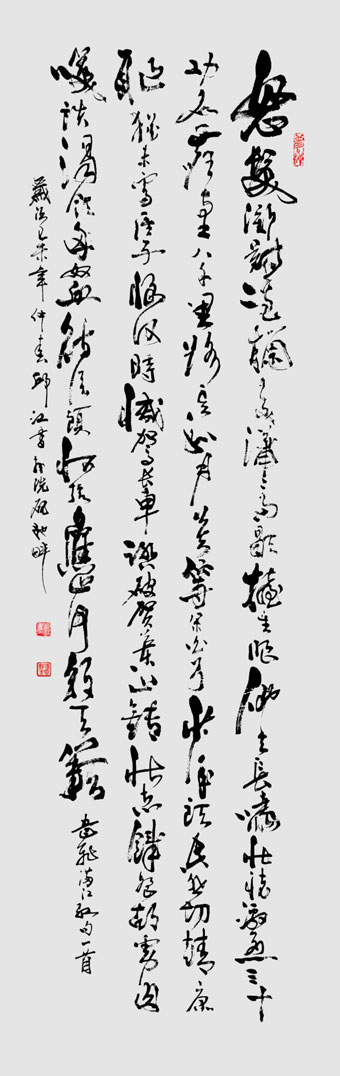 怒髮衝冠憑欄處瀟瀟雨歇抬望眼仰天長嘯壯懷激烈三十
功名塵與土八千里路雲和月莫等閒白了少年頭空悲切靖康
恥猶未雪臣子恨何時滅駕長車踏破賀蘭山缺壯志饑餐胡虜肉
笑談渴飲匈奴血待從頭收拾舊山河朝天闕 岳飛滿江紅句一首
歲次乙未年仲春邱江書於洗硯池畔